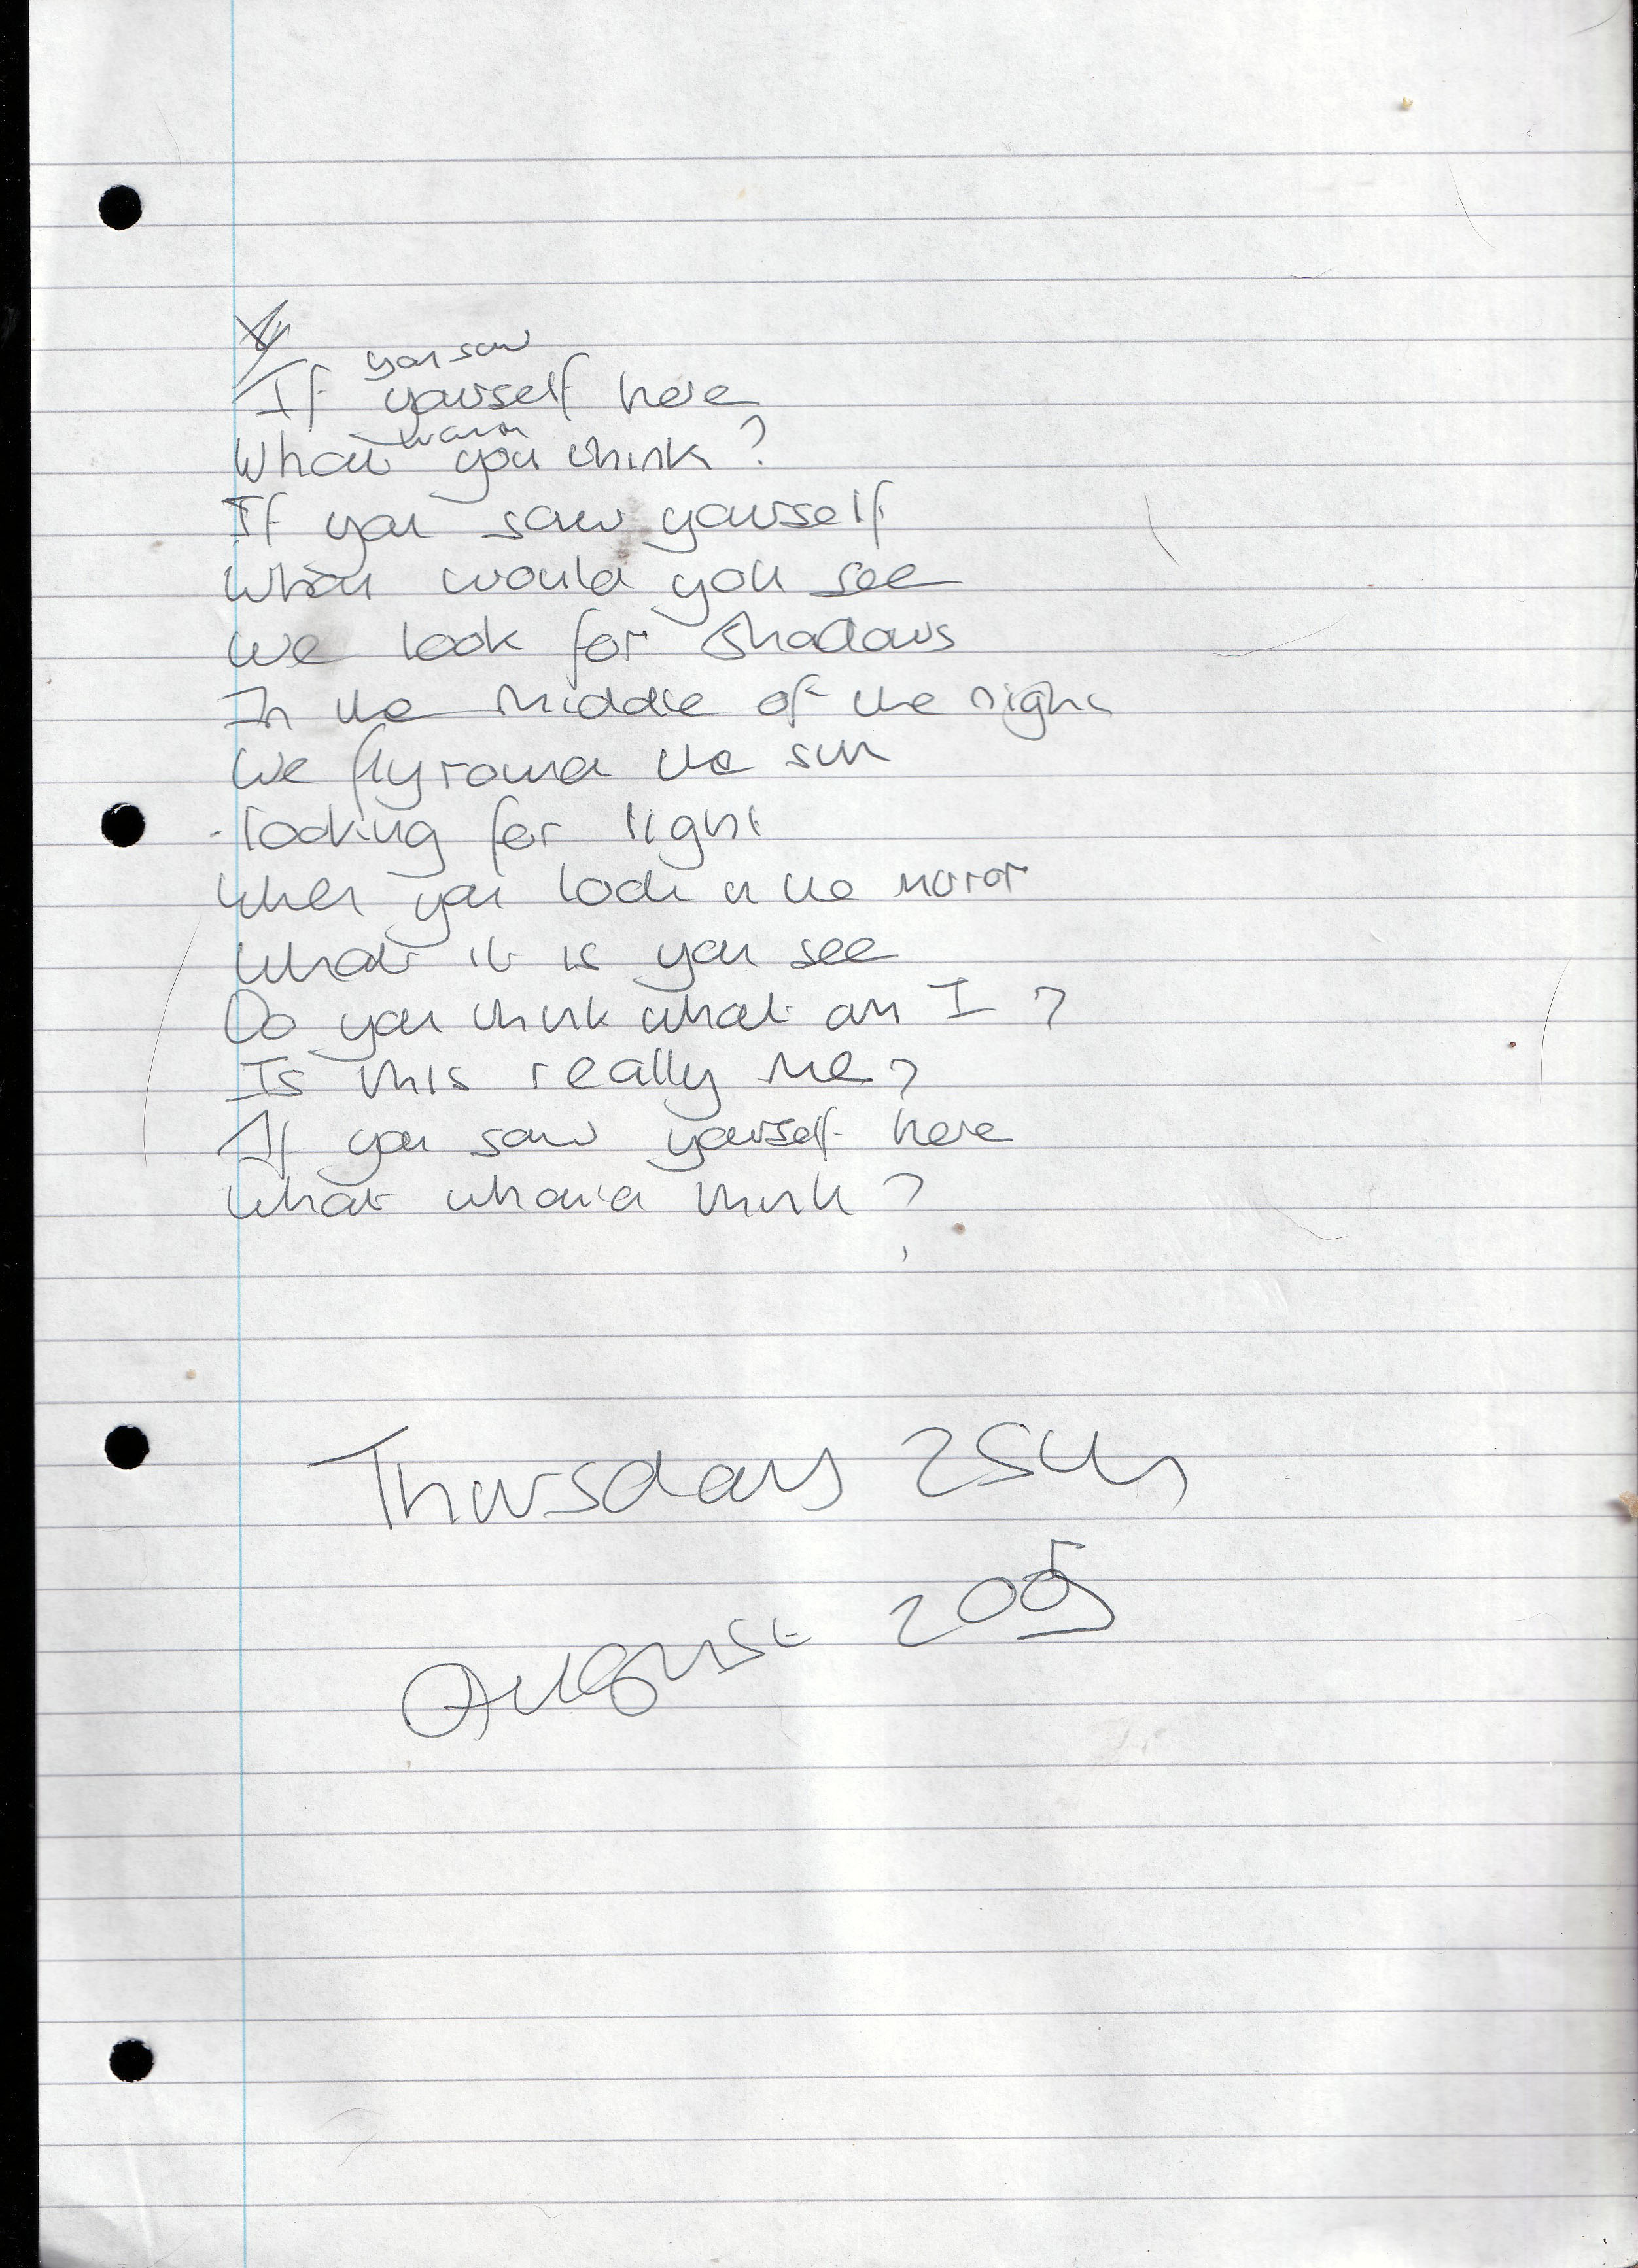 If you saw yourself here
What would you think?
If you saw yourself
What would you see
We look for shadows
In the middle of the night
We fly round the sun
looking for light
When you look in the mirror
What it is you see
Do you think what am I?
Is this really me?
If you saw yourself here
What whould think?
Thursday 25th
August 2005